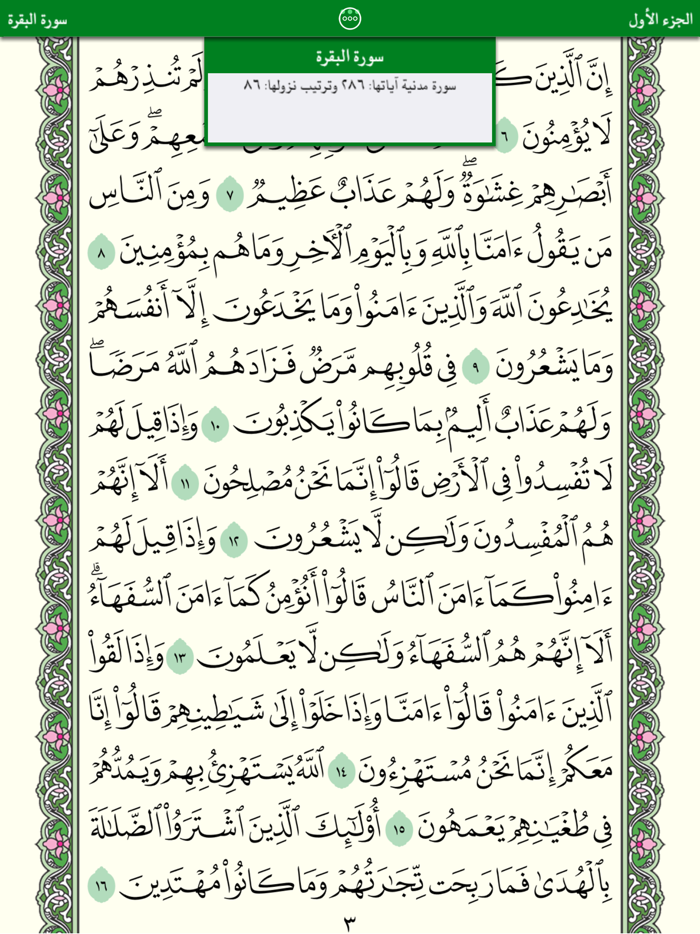 الجزء الأول
سورة البقرة
سورة البقرة
سورة مدنية آياتها: ٢٨٦ وترتيب نزولها: ٨٦
إِنَّ ٱلَّذِينَ لَمْ تُنذِرْهُمْ
لَا يُؤْمِنُونَ ٦ وَعَلَىٰٓ
أَبْصَٰرِهِمْ غِشَٰوَةٌۖ وَلَهُمْ عَذَابٌ عَظِيمٌ ٧ وَمِنَ ٱلنَّاسِ
مَن يَقُولُ ءَامَنَّا بِٱللَّهِ وَبِٱلْيَوْمِ ٱلْءَاخِرِ وَمَا هُم بِمُؤْمِنِينَ ٨
يُخَٰدِعُونَ ٱللَّهَ وَٱلَّذِينَ ءَامَنُوا۟ وَمَا يَخْدَعُونَ إِلَّآ أَنفُسَهُمْ
وَمَا يَشْعُرُونَ ٩ فِى قُلُوبِهِم مَّرَضٌ فَزَادَهُمُ ٱللَّهُ مَرَضًاۖ
وَلَهُمْ عَذَابٌ أَلِيمٌۢ بِمَا كَانُوا۟ يَكْذِبُونَ ١٠ وَإِذَا قِيلَ لَهُمْ
لَا تُفْسِدُوا۟ فِى ٱلْأَرْضِ قَالُوٓا۟ إِنَّمَا نَحْنُ مُصْلِحُونَ ١١ أَلَآ إِنَّهُمْ
هُمُ ٱلْمُفْسِدُونَ وَلَٰكِن لَّا يَشْعُرُونَ ١٢ وَإِذَا قِيلَ لَهُمْ
ءَامِنُوا۟ كَمَآ ءَامَنَ ٱلنَّاسُ قَالُوٓا۟ أَنُؤْمِنُ كَمَآ ءَامَنَ ٱلسُّفَهَآءُۗ
أَلَآ إِنَّهُمْ هُمُ ٱلسُّفَهَآءُ وَلَٰكِن لَّا يَعْلَمُونَ ١٣ وَإِذَا لَقُوا۟
ٱلَّذِينَ ءَامَنُوا۟ قَالُوٓا۟ ءَامَنَّا وَإِذَا خَلَوْا۟ إِلَىٰ شَيَٰطِينِهِمْ قَالُوٓا۟ إِنَّا
مَعَكُمْ إِنَّمَا نَحْنُ مُسْتَهْزِءُونَ ١٤ ٱللَّهُ يَسْتَهْزِئُ بِهِمْ وَيَمُدُّهُمْ
فِى طُغْيَٰنِهِمْ يَعْمَهُونَ ١٥ أُو۟لَٰٓئِكَ ٱلَّذِينَ ٱشْتَرَوُا۟ ٱلضَّلَٰلَةَ
بِٱلْهُدَىٰ فَمَا رَبِحَت تِّجَٰرَتُهُمْ وَمَا كَانُوا۟ مُهْتَدِينَ ١٦
٣